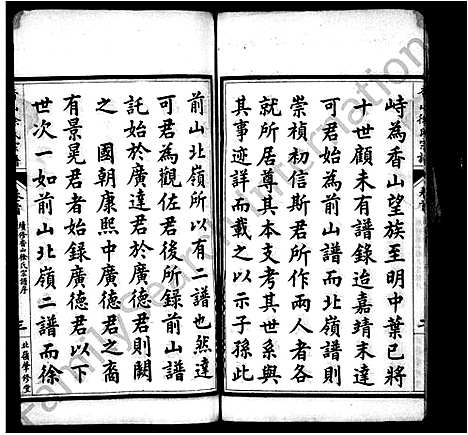 峙為香山望族至明中葉已將
十世顧未有譜錄迨嘉靖末達
可君為前山譜而北嶺譜則
崇禎初信斯君所作兩人者各
就所居尊其本支考其世系與
其事迹詳而載之以示子孫此
前山北嶺所以有二譜也然達
可君為觀佐君後所錄前山譜
託始於廣達君於廣德君則闕
之　國朝康熙中廣德君之裔
有景晃君者始於廣德君以下
世次一如前山北嶺二譜而徐
續修香山徐氏宗譜序
三
北嶺肇修堂
FamilySearch International